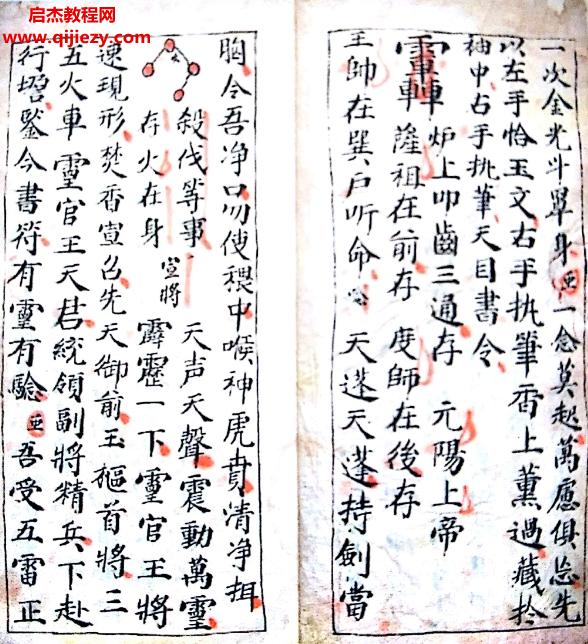 启杰教程网
www.qijiezy.com
一次金光斗罩身 一念莫起萬慮俱忘先
以左手恰玉文右手执筆香上薰過藏扵
袖中右手执筆天目書令
炉上叩齒三通存 元陽上帝
薩祖在前存 度師在後存
王帥在巽户听命 天蓬天蓬持劍當
胸令吾净口勿使穢中喉神虎賁清净揖
殺伐等事 天声天聲震動萬靈
存火在身 宣將 霹靂一下靈官王將
速現形焚香宣召先天御前玉樞首將三
五火車靈官王天君統領副將精兵下赴
行壇鑒今書符有靈有驗 吾受五雷正